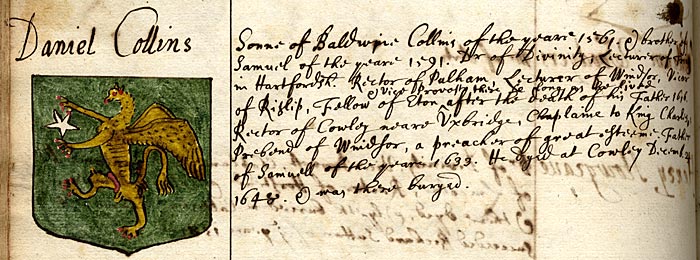 Daniel Collins
Sonne of Baldwine Collins of the yeare 1561. & brother to
Samuel of the yeare 1591. Dr of Divinity, Lecturer of
in Hartfordsh. Rector of Pulham, Lecturer of Windsor, Vicar
Vice Provost there he
of Rislip, Fellow of Eton after the death of his Father 161
Rector of Cowley neare Uxbridge, Chaplaine to King Charles,
Prebend of Windsor, a preacher of great esteeme, Father
of Samuell of the yeare 1633. He dyed at Cowley Decemb.
1648. & was there buryed.